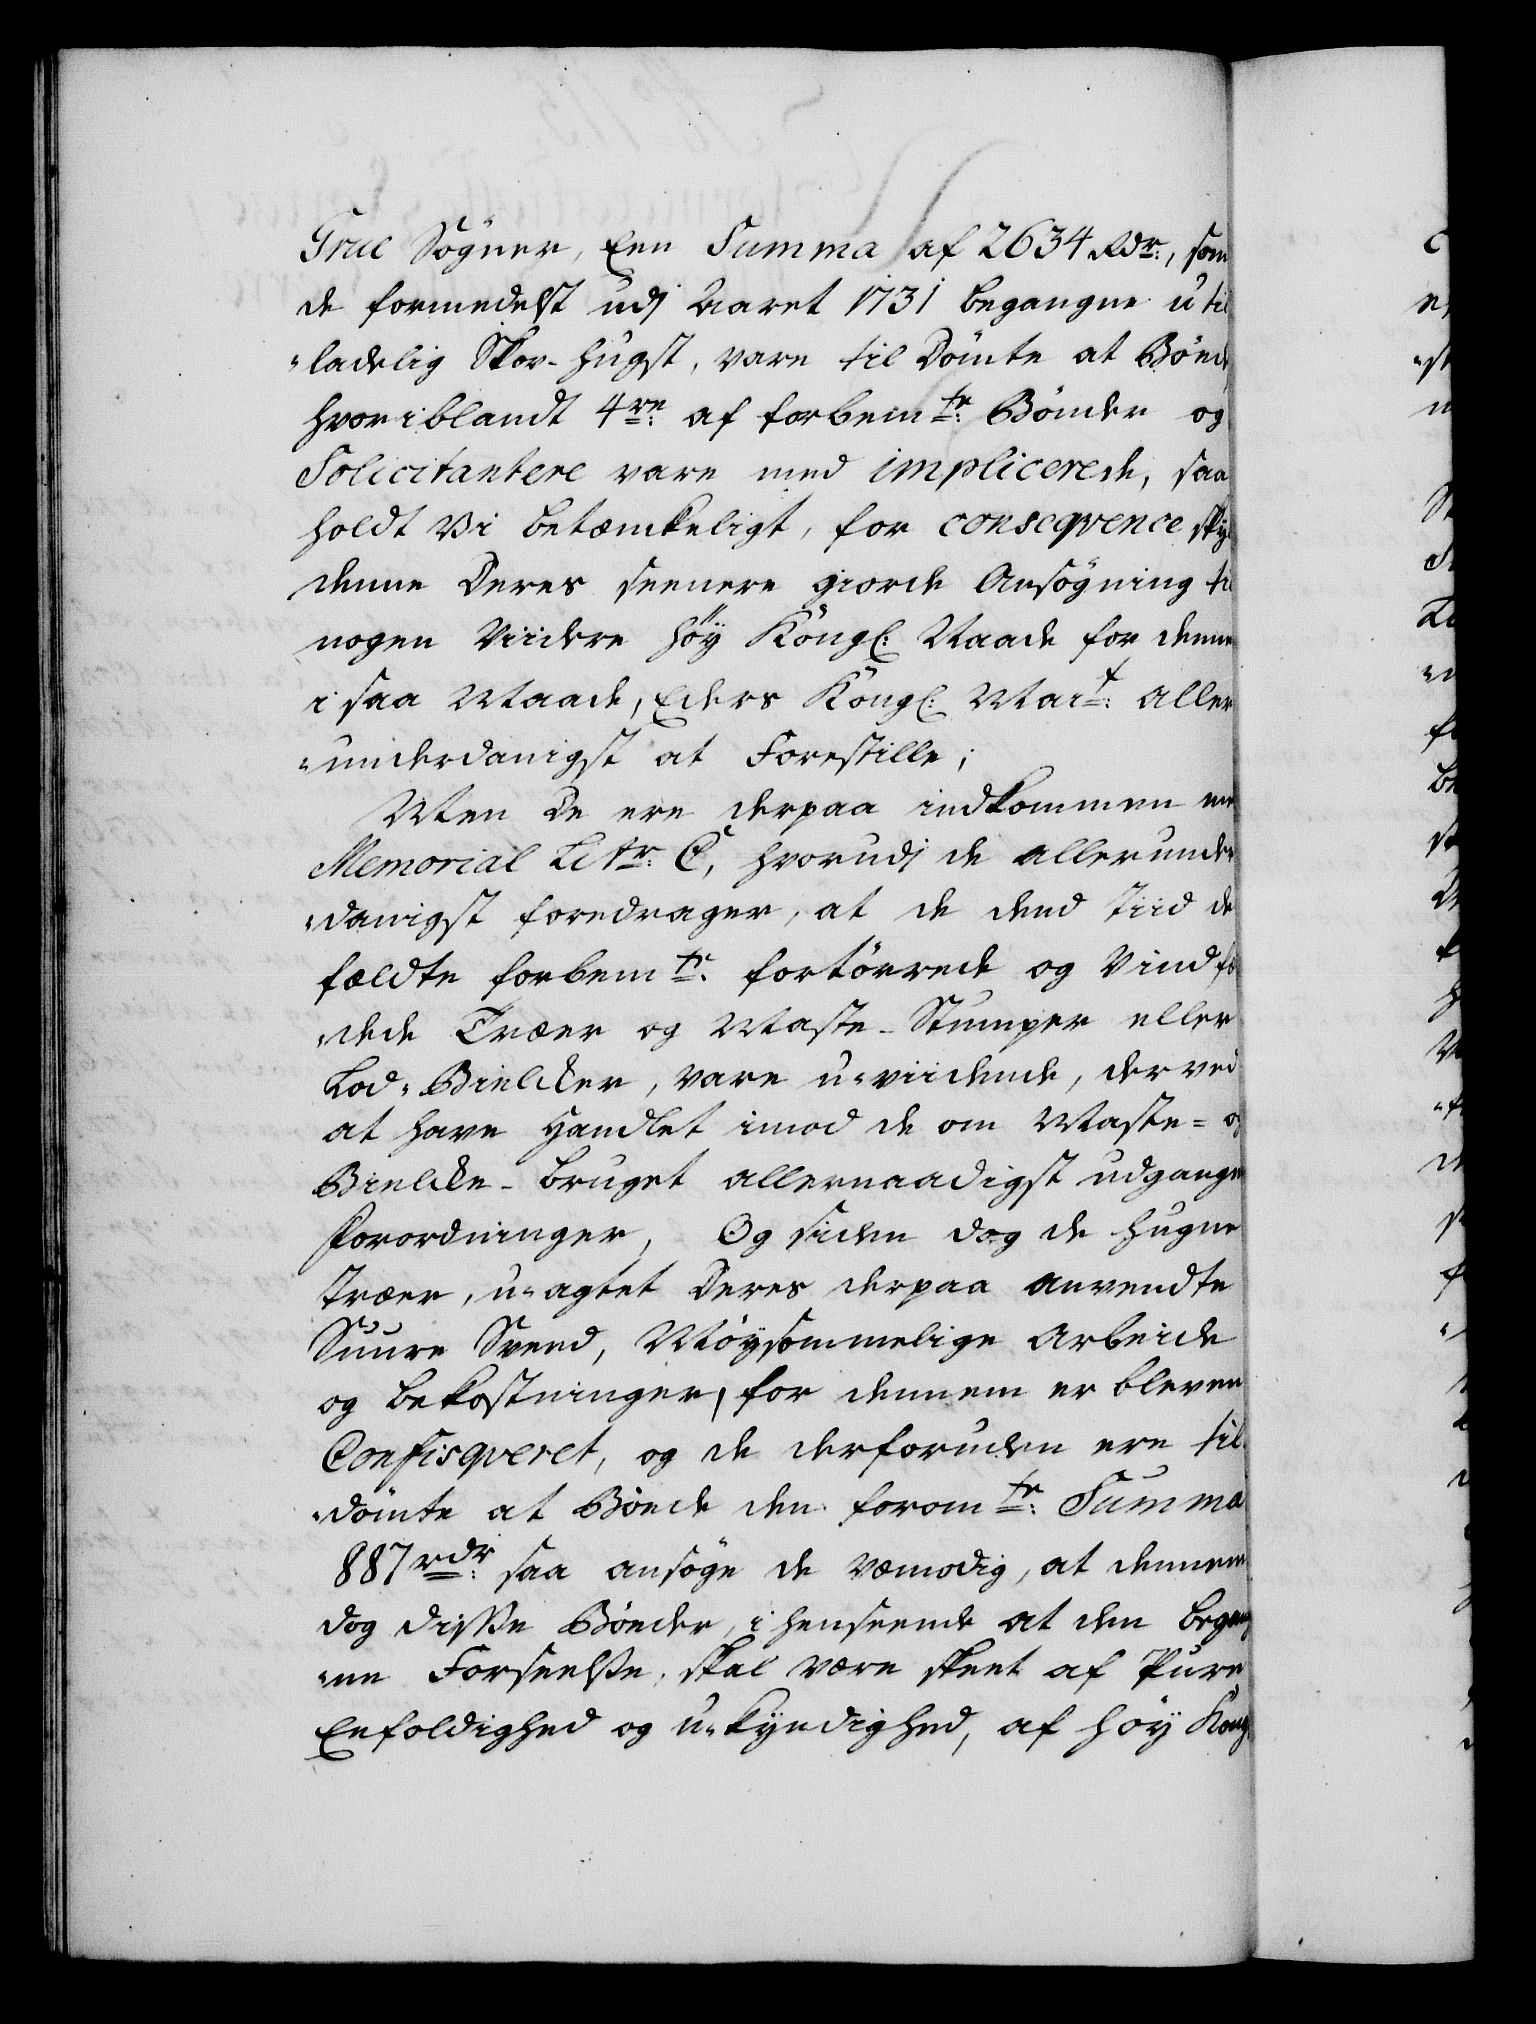 Grue Sogner, Een Summa af 2634 Rdr:, som
de formedelst udj Aaret 1731 begangne util
„ladelig Skov-Hugst, vare til Dömte at Böde,
hvoriblandt 4re: af forbemte: Bönder og
Solicitantere vare med implicerede, saa
holdt Vi betæmkeligt, for conseqvence skyl
denne Deres seenere giorde Ansögning til
nogen Viidere höy Köngl: Naade for denne
i saa Maade, Eders Köngl: Mait: aller
„underdanigst at Forestille;
Men De ere derpaa indkommen med
Memorial Litr: C, hvorudj de allerunder
„danigst foredrager, at de dend Tiid de
fældte forbemte: fortörrede og Vindfæ
„dede Træer og Maste-Stumper eller
Lod-Bielcker, vare u-viidende, derved
at have Handlet imod de om Maste- og
Bielcke-bruget allernaadigst udgangne
Forordninger, Og siden dog de hugne
Træer, u-agtet Deres derpaa anvendte
Suure Sveed, Möysommelige Arbeide
og bekostninger, for dennem er bleven
Confisqveret, og de derforuden ere til
„dömte at Böede den foromte: Summa
887 rdr: saa ansöge de vemodig, at dennem
dog disse Böeder, i henseende at den begang
„ne Forseelse, skal være skeet af Pure
Enfoldighed og u-kyndighed, af höy Kongl